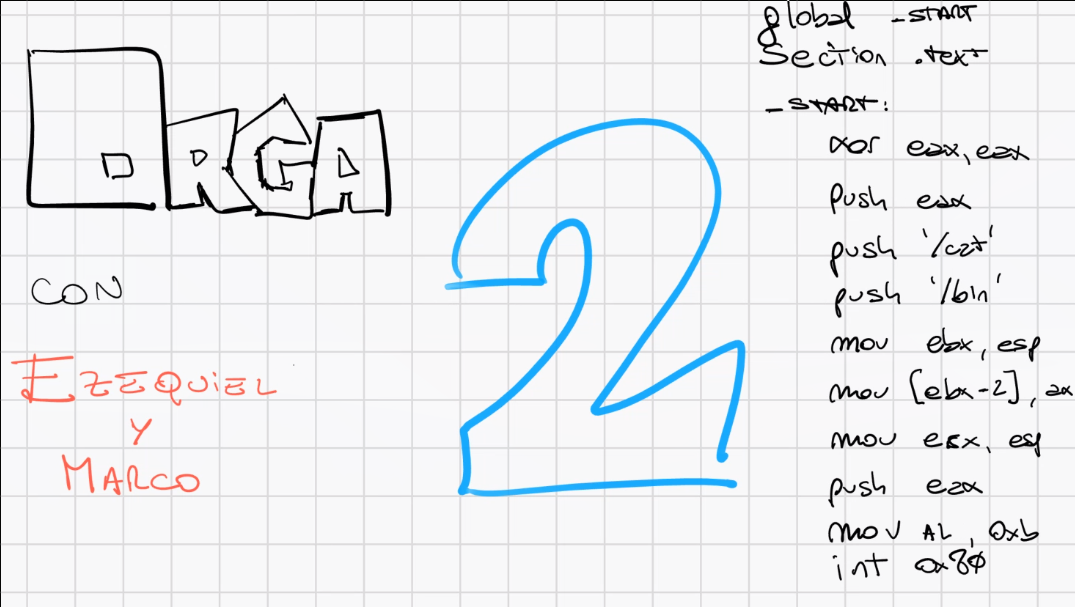 ORGA
2
CON
EZEQUIEL
Y
MARCO
global _START
Section .text
_START:
xor eax, eax
push eax
push '/cat'
push '/bin'
mov ebx, esp
mov [ebx-2], ax
mov ecx, esp
push eax
mov AL, 0xb
int 0x80